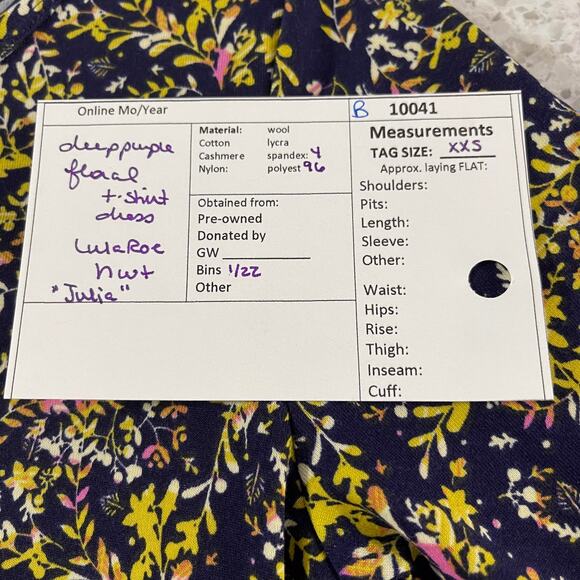 Online Mo/Year
B 10041
deep purple
floral
t-shirt
dress
LulaRoe
nwt
"Julia"
Material: wool
Cotton lycra
Cashmere spandex: 4
Nylon: polyest 96
Obtained from:
Pre-owned
Donated by
GW
Bins 1/22
Other
Measurements
TAG SIZE: XXS
Approx. laying FLAT:
Shoulders:
Pits:
Length:
Sleeve:
Other:
Waist:
Hips:
Rise:
Thigh:
Inseam:
Cuff: